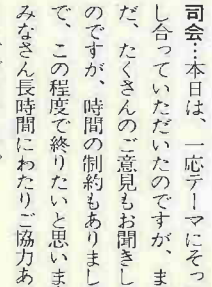 司会…本日は、一応テーマにそっ
し合っていただいたのですが、ま
だ、たくさんのご意見もお聞きし
のですが、時間の制約もありまし
で、この程度で終りたいと思いま
みなさん長時間にわたりご協力あ